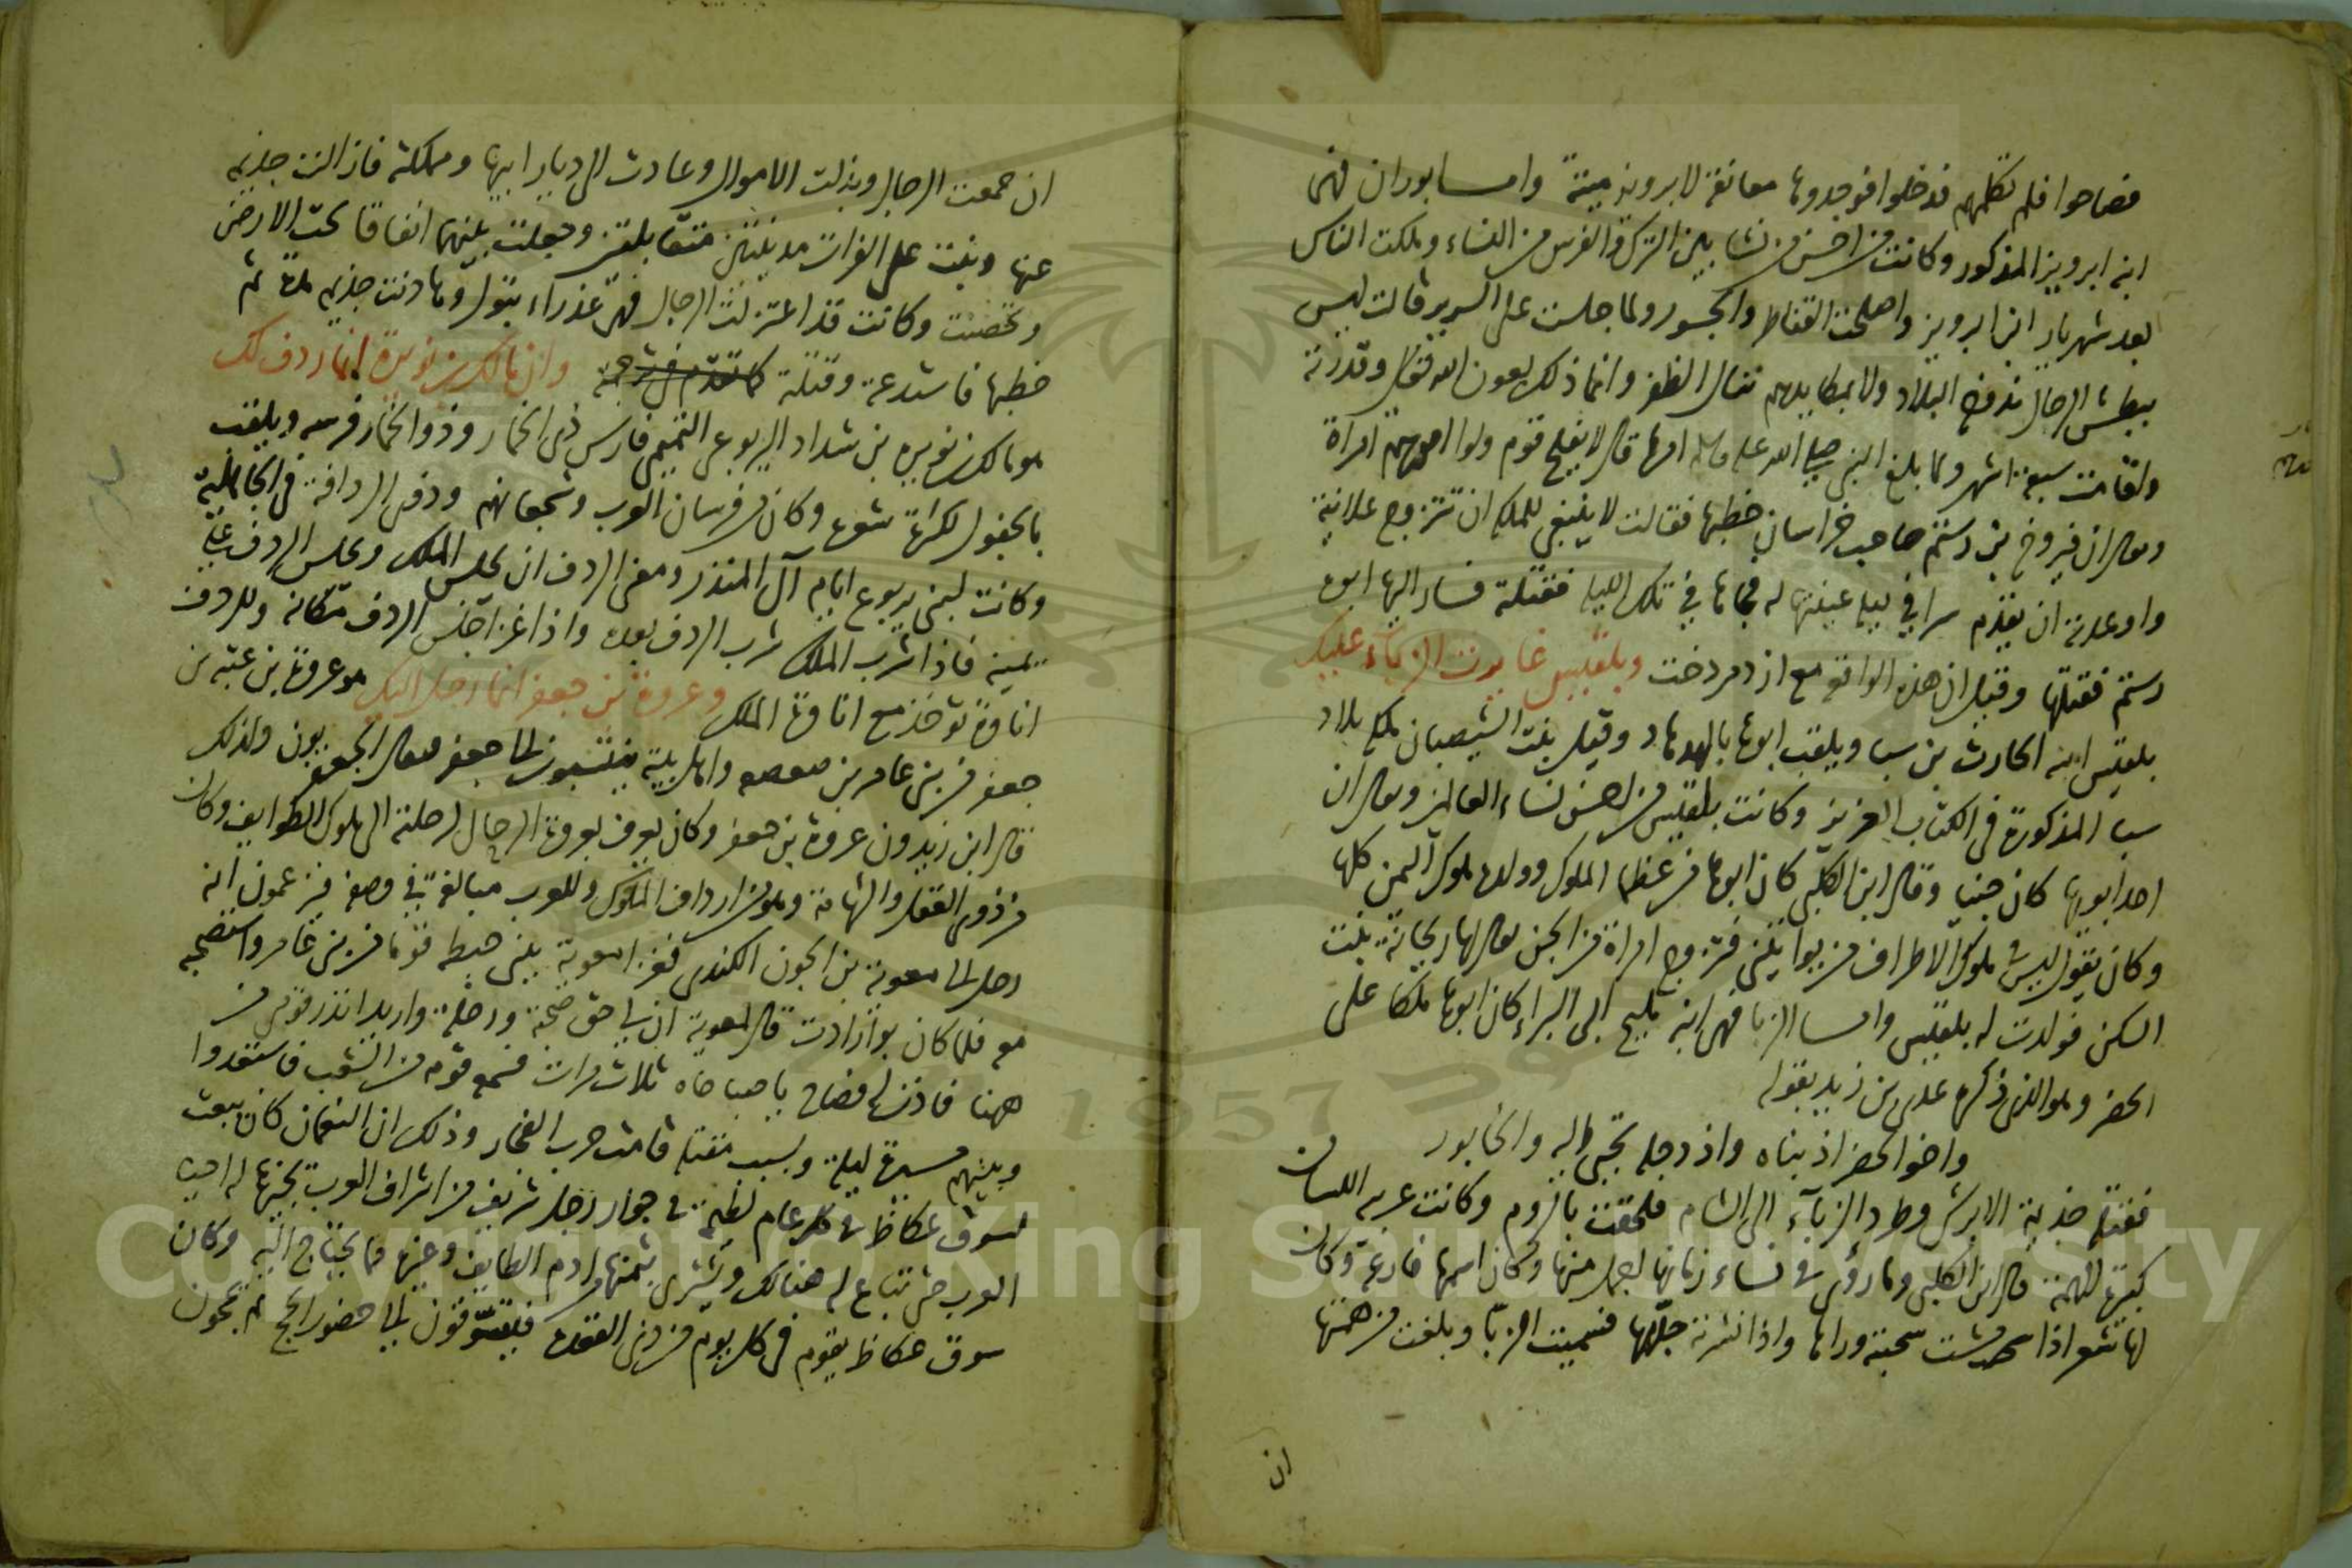 فصاحوا فلم تكلمهم فدخلوا فوجدوها معانقة لابرويز ميتة واما بوران فهى
ابنة ابرويز المذكور وكانت من احسن من نشا بين الترك والفرس من النساء وملكت الناس
بعد شهريار ابن ابرويز واصلحت القناطر والجسور ولما جلست على السرير قالت ليس
ببطش الرجال تدوخ البلاد ولا بمكايدهم تنال الظفر وانما ذلك بعون الله تعالى وقدرته
واقامت سبعة اشهر ولما بلغ النبى صلى الله عليه وسلم امرها قال لا يفلح قوم ولوا امورهم امراة
ويقال ان فيروخ بن رستم صاحب خراسان خطبها فقالت لا ينبغى للملكة ان تتزوج علانية
واوعدته ان يقدم سرا فى ليلة عينتها له فجاها فى تلك الليلة فقتلته فسار اليها ابوه
رستم فقتلها وقيل ان هذه الواقعة مع ازدمردخت وبلقيس غايرت الزباء عليك
بلقيس ابنة الحارث بن سبا ويلقب ابوها بالهدهاد وقيل بنت الشيصبان ملكة بلاد
سبا المذكورة فى الكتاب العزيز وكانت بلقيس من احسن نساء العالمين ويقال ان
احد ابويها كان جنيا وقال ابن الكلبى كان ابوها من عظما الملوك وولده ملوك اليمن كلها
وكان يقول ليس فى ملوك الاطراف من يوانينى فتزوج امراة من الجن يقال لها ريحانة بنت
السكن فولدت له بلقيس واما الزبا فهى ابنة مليح ابن البراء كان ابوها ملكا على
الحضر وهو الذى ذكره عدى بن زيد بقوله
واخو الحضر اذ بناه واذ دجلة تجبى اليه والخابور
فقتله جذيمة الابرش وطرد الزباء الى الشام فلحقت بالروم وكانت عربية اللسان
كبيرة الهمة قال ابن الكلبى وما رؤى فى نساء زمانها اجمل منها وكان اسمها فارعة وكان
لها شعر اذا مشت سحبته وراها واذا نشرته جللها فسميت الزبا وبلغت من همتها
ان
ان جمعت الرجال وبذلت الاموال وعادت الى ديار ابيها ومملكته فازالت جذيمة
عنها وبنت على الفرات مدينتين متقابلتين وجعلت بينهما انفاقا تحت الارض
وتحصنت وكانت قد اعتزلت الرجال فهى عذراء بتول وهادنت جذيمة مدة ثم
خطبها فاستدعته وقتلته كما تقدم فى ترجمته وان مالك بن نويرة انما ردف لك
هو مالك بن نويرة بن شداد اليربوعى التميمى فارس ذى الخمار وذو الخمار فرسه ويلقب
بالجفول لكثرة شعره وكان من فرسان العرب وشجعانهم وذوى الردافة فى الجاهلية
وكانت لبنى يربوع ايام آل المنذر ومعنى الردف ان يجلس الملك ويجلس الردف على
يمينه فاذا شرب الملك شرب الردف بعده واذا غزا جلس الردف مكانه وللردف
اتاوة تؤخذ مع اتاوة الملك وعروة بن جعفر انما رحل اليك هو عروة بن عتبة بن
جعفر من بنى عامر بن صعصعة واهل بيته ينتسبون الى جعفر فيقال الجعفريون ولذلك
قال ابن زيدون عروة بن جعفر وكان يعرف بعروة الرحال لرحلته الى ملوك الطوايف وكان
من ذوى العقل والشهامة وهو من ارداف الملوك وللعرب مبالغة فى وصفه فيزعمون انه
رحل الى معوية بن الجون الكندى فغزا معوية بنى حنظلة قوما من بنى عامر واستصحبه
معه فلما كان بواردات قال لمعوية ان لى حق صحبة ورحلة واريد انذر قومى من
ههنا فاذن له فصاح يا صباحاه ثلاث مرات فسمع قومه من الشعب فاستعدوا
وبينهم مسيرة ليلة وبسبب مقتله قامت حرب الفجار وذلك ان النعمان كان يبعث
لسوق عكاظ فى كل عام لطيمة فى جوار رجل شريف من اشراف العرب يجيزها له احياء
العرب حتى تباع له هنالك ويشترى بثمنها من ادم الطايف وغيرها مما يحتاج اليه وكان
سوق عكاظ يقوم فى كل يوم من ذى القعدة فيتسوقون الى حضور الحج ثم يحجون